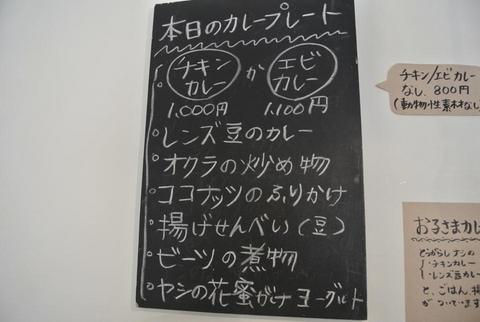 本日のカレープレート
チキンカレー か エビカレー
1,000円 1,100円
レンズ豆のカレー
オクラの炒め物
ココナッツのふりかけ
揚げせんべい（豆）
ビーツの煮物
ヤシの花蜜がけヨーグルト
チキン/エビカレー
なし 800円
(動物性素材なし
お子さまカレ
とうがらしナシの
チキンカレー
レンズ豆カレー
と、ごはん、揚
がついてます